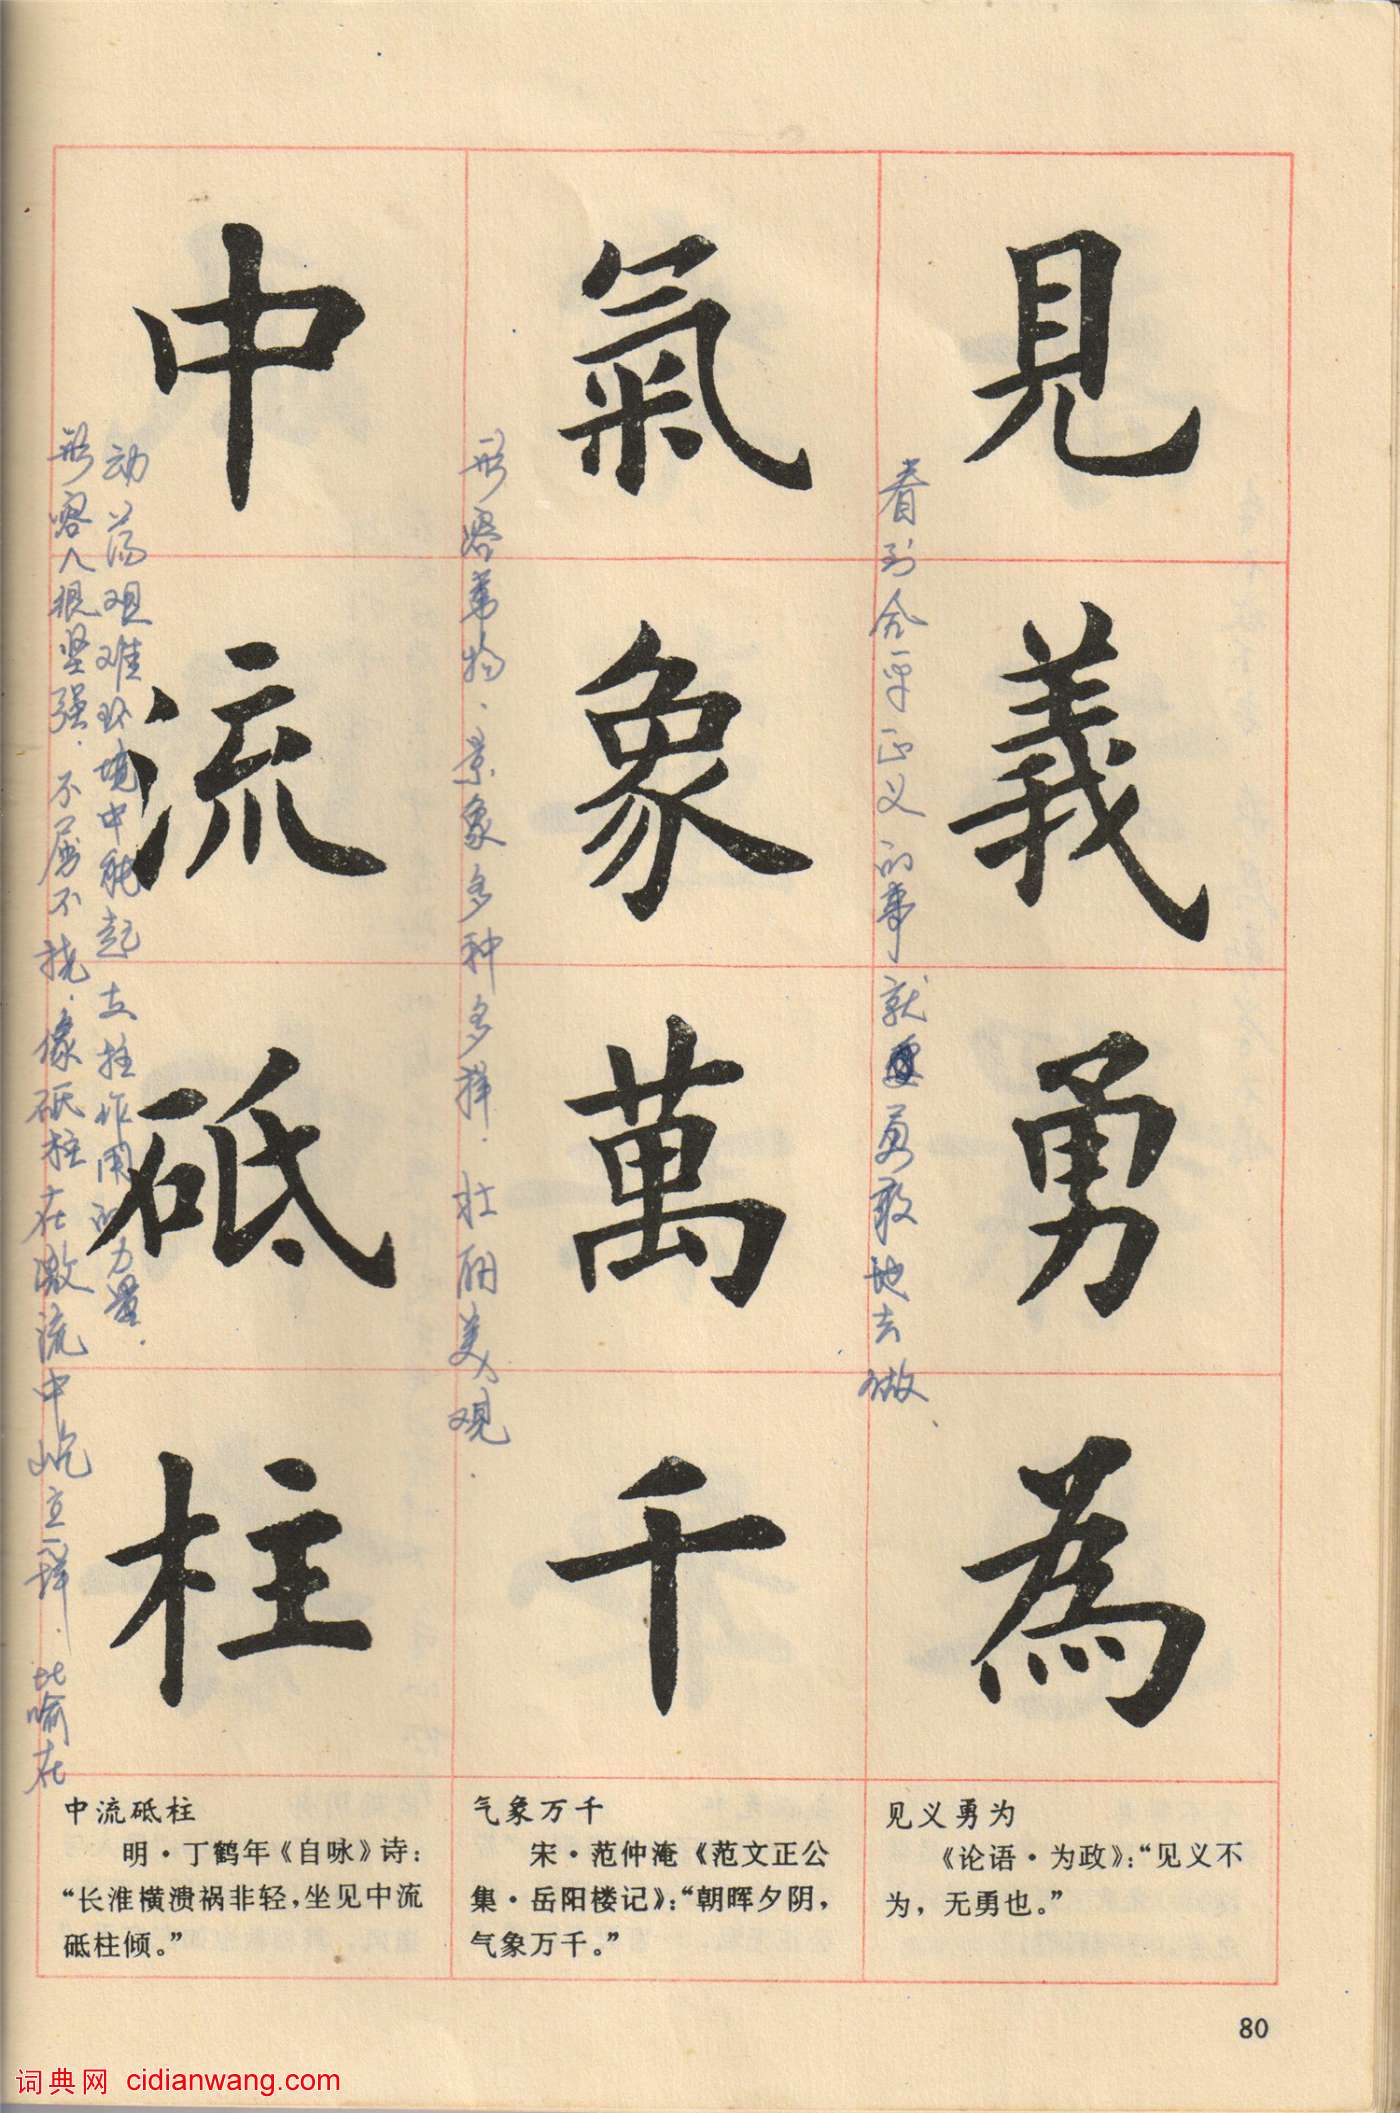 見義勇為
氣象萬千
中流砥柱
看到合乎正义的事就要勇敢地去做
形容事物、景象多种多样，壮丽美观．
形容人很坚强．不屈不挠．像砥柱在激流中屹立一样．比喻在
动荡艰难环境中能起支柱作用的力量．
见义勇为
《论语·为政》：“见义不
为，无勇也。”
气象万千
宋·范仲淹《范文正公
集·岳阳楼记》：“朝晖夕阴，
气象万千。”
中流砥柱
明·丁鹤年《自咏》诗：
“长淮横溃祸非轻，坐见中流
砥柱倾。”
80
词典网 cidianwang.com